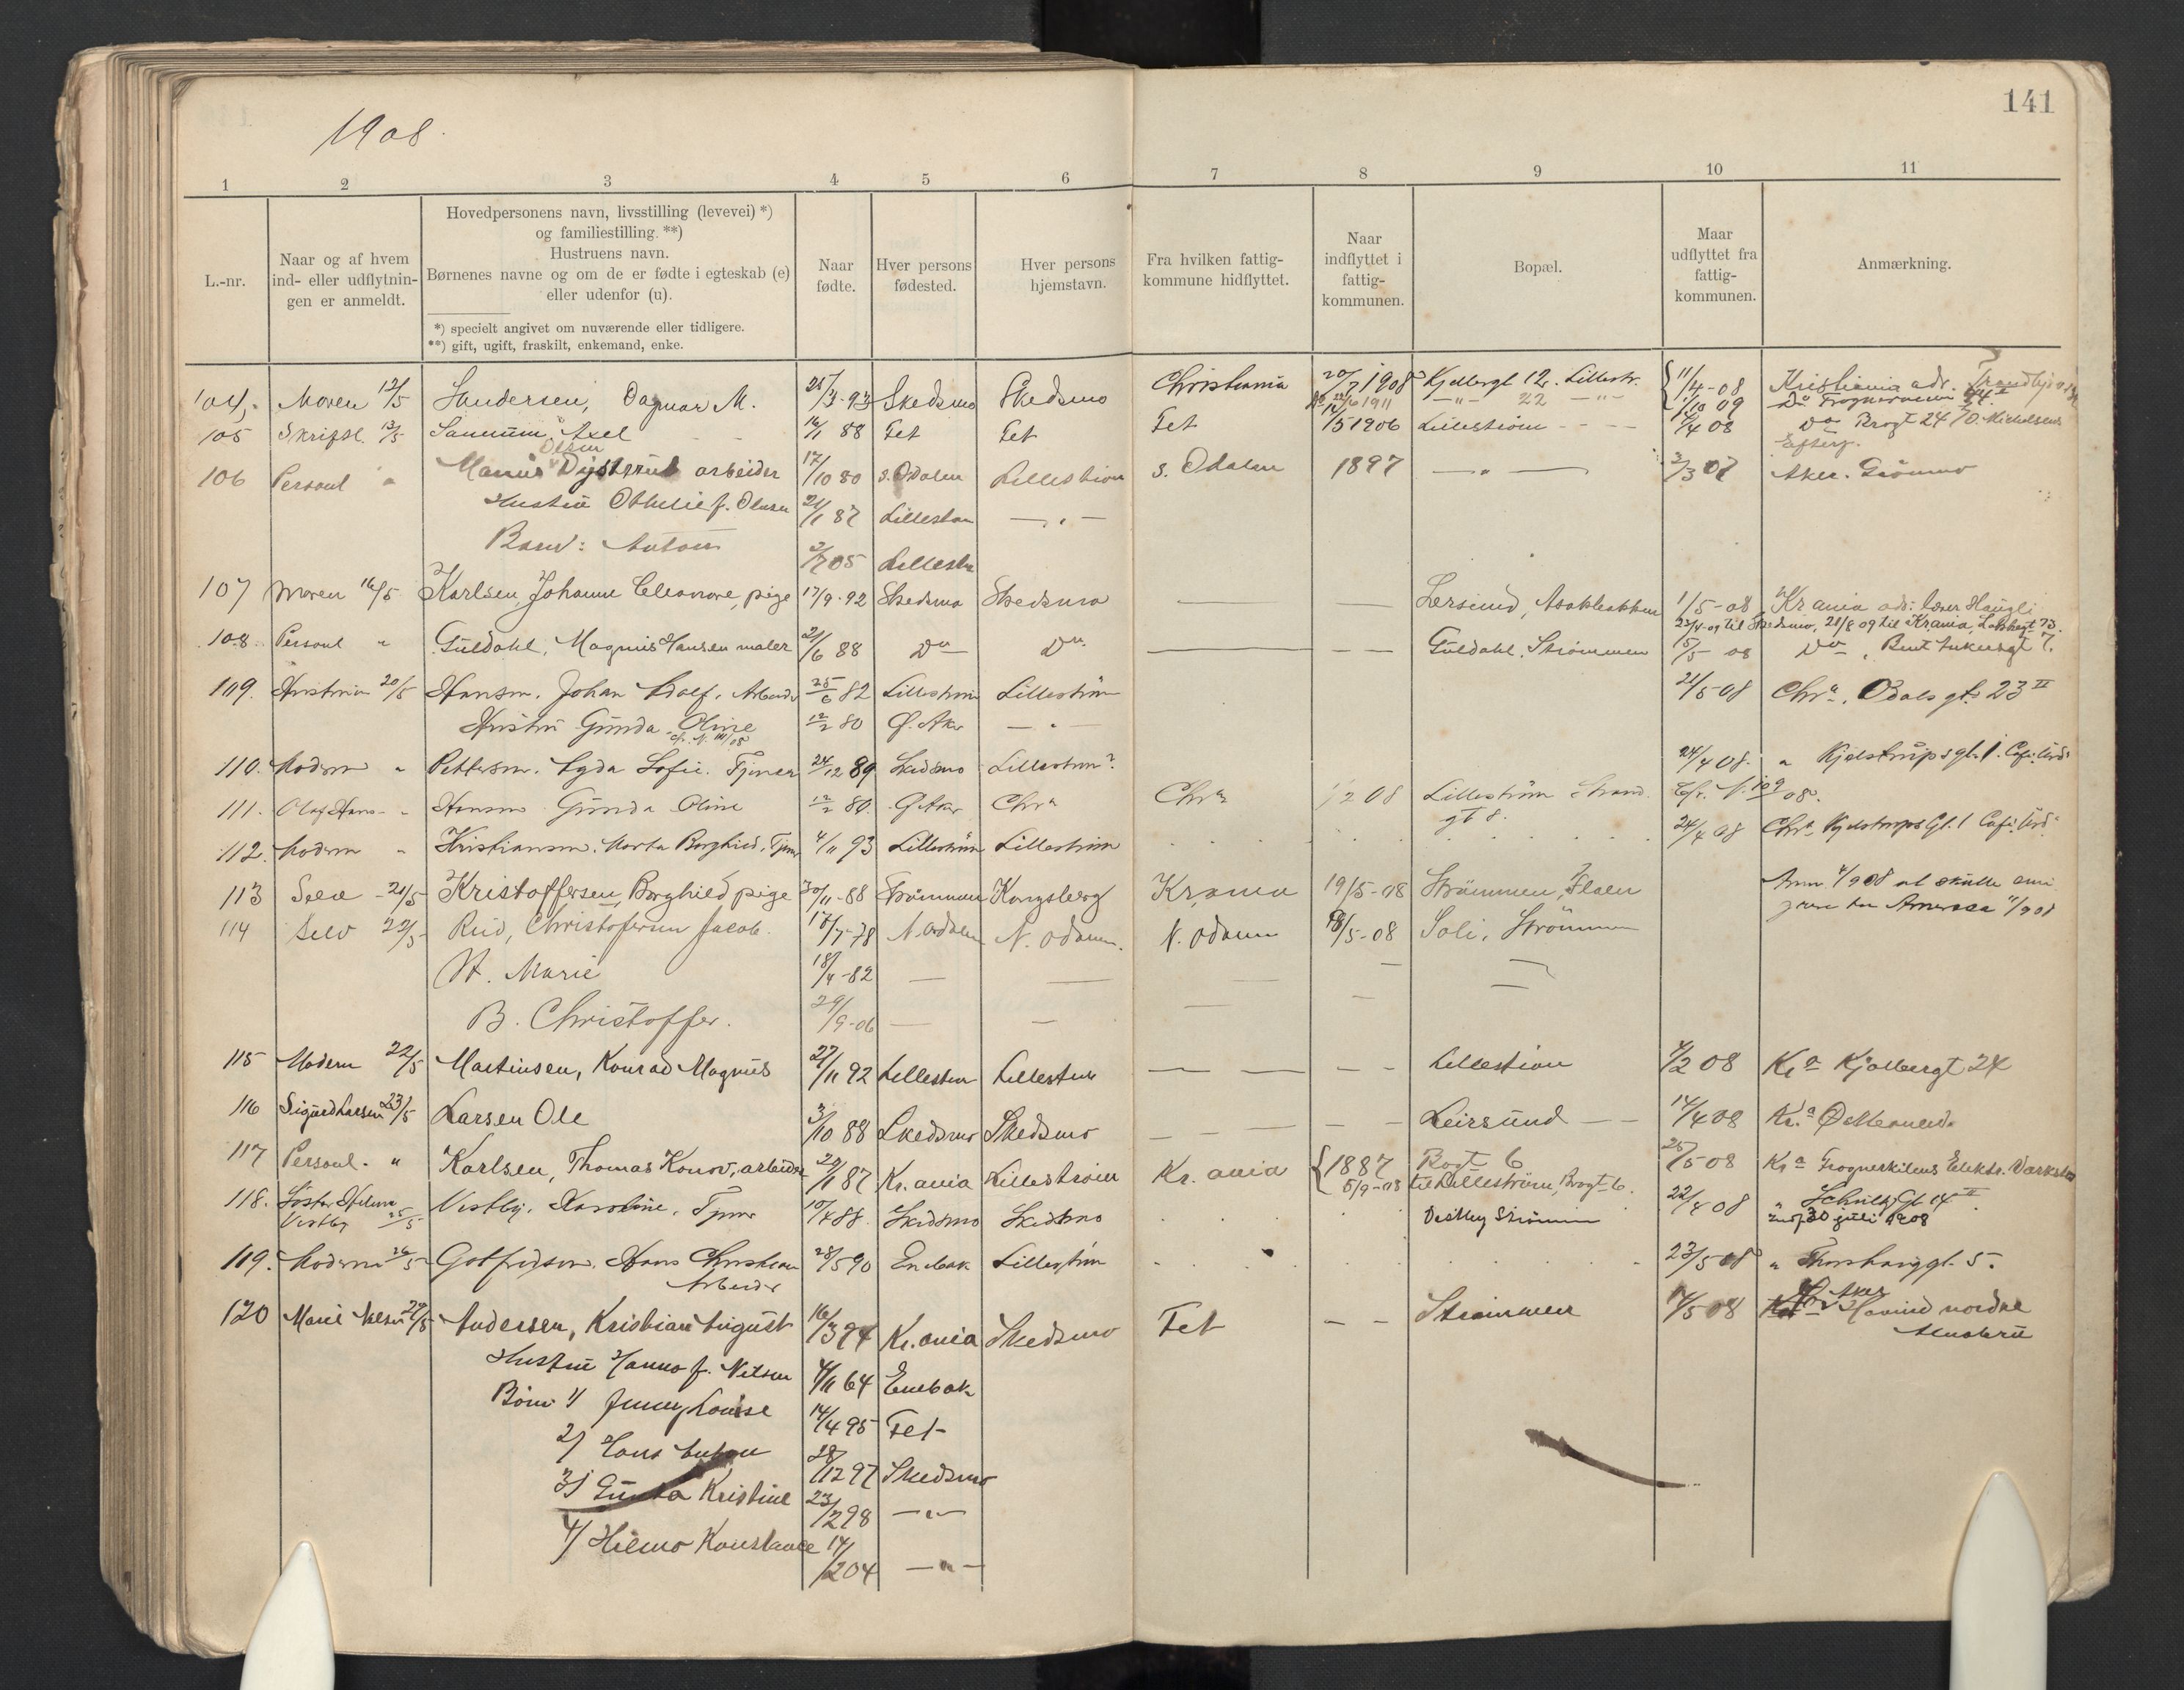 141
1908.
1 2 3 4 5 6 7 8 9 10 11
L.-nr.
Naar og af hvem
ind- eller udflytnin-
gen er anmeldt.
Hovedpersonens navn, livsstilling (levevei) *)
og familiestilling. **)
Hustruens navn.
Børnenes navne og om de er fødte i egteskab (e)
eller udenfor (u).
*) specielt angivet om nuværende eller tidligere.
**) gift, ugift, fraskilt, enkemand, enke.
Naar
fødte.
Hver persons
fødested.
Hver persons
hjemstavn.
Fra hvilken fattig-
kommune hidflyttet.
Naar
indflyttet i
fattig-
kommunen.
Bopæl.
Maar
udflyttet fra
fattig-
kommunen.
Anmærkning.
104. Moren 12/5 Sandersen, Dagmar M. 25/3-93 Skedsmo Skedsmo Christiania 20/7 1908 Kjelbergt 12. Lillestr. 11/4-08 Kristiania adr.
6 1911 -"- 22 -"- 1/10 09 Do
105 Skriftl. 13/5 Axel 16/1 88 Fet Fet Fet 1/5 1906 Lillestrøm 1/4 08 Do Brogt 24
Efterf.
Olsen
106 Personl " Marius arbeider 17/10 80 s. Odalen Lillestrøm s. Odalen 1897 -"- 3/3 07 Aker. Grönmo
Hustru Othilie f. Olsen 21/1 87 Lillestrøm -"-
Barn: Antom 2/7 05 Lillestr
107 Moren 16/5 Karlsen, Johanne Eleonore, pige 17/9-92 Skedsmo Skedsmo — — Lersund, Asakbakken 1/5-08 Krania adr: Haugli
23/4-09 til Skedsmo, 21/8 09 til Krania, 73.
108. Personl " Guldahl, Magnus Hansen maler 21/6 88 Do Do — — Guldahl. Strømmen 15/5 08 Do, Bent Ankersgt 7.
109. Hustruen 20/5 Hansen. Johan Adolf. Arbeider 25/6 82 Lillestrøm Lillestrøm 21/5-08 Chra. Odals gt. 23 II
Hustru Gunda Oline 12/2 80 Ø. Aker -"-
cfr. N. 111/08
110. Modern " Pettersen. Lyda Sofie. Tjener 24/12 89 Skedsmo Lillestrøm? 24/4 08. " Kjelstrupsgt. 1. Café
111. Olaf Hans " Hansen Gunda Oline 12/2 80. Ø Aker Chra Chra 1/2 08 Lillestrøm Strand. Cfr. N. 109/08.
gt 8.
112. Modern " Kristiansen. Marta Borghild, Tjener 4/11 93 Lillestrøm Lillestrøm 24/4 08 Chra Kjelstrups Gt. 1 Café
113 Selv 21/5 Kristoffersen, Borghild pige 30/11-88 Strømmen Kongsberg Krania 19/5-08 Strömmen, Anm 4/9 08 at skulle
America 11/9 08
114 Selv 22/5 Rud, Christofersen Jacob. 17/7-78 N. Odalen N. Odalen. N. Odalen 18/5-08 Soli, Strömmen
H. Marie 18/4-82 — — — — —
B. Christoffer. 29/9-06 — — — — —
115 Modern 22/5 Martinsen, Konrad Magnus 27/11 92 Lillestrøm Lillestrøm — — — Lillestrøm 4/2 08 Kra Kjölbergt 24
116 Sigurd Larsen 23/5 Larsen Ole 3/10 88 Skedsmo Skedsmo — — — Leirsund 14/4 08 Kra.
117 Personl. " Karlsen, Thomas Konov, arbeider 29/1 87 Kr.ania Lillestrøm Kr. ania 1887 Brogt 6 25/5-08 Kra Frognerkilens Elektr. Værksted
5/9-08 til Lilleström, Brogt. 6.
118. Søster Helena Vestby 25/5 Vestby, Karoline, Tjener 10/4 88. Skedsmo Skedsmo Vestby Strømmen 22/4 08 " Schultz Gt 14 II
30 juli 1908
119. Modern 26/5 Gotfredsen. Hans Christian 28/5 90 Enebak Lillestrøm 23/5 08 " Thorshauggt. 5.
Arbeider
120 Marie Nelsen 29/5 Andersen, Kristian August 16/3 74 Kr.ania Skedsmo Fet — — Strømmen 14/5 08 Aker Havind nordre
Hustru Hanna f. Nilsen 4/11 64 Enebak
Børn 1/ Jenny Louise 14/4 95 Fet
2/ Hans Anton 28/12 97 Skedsmo
3/ Gunda Kristine 23/2 98 -"-
4/ Hilmo Konstanse 14/2 04 -"-